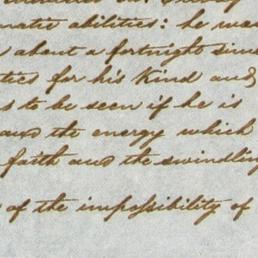 matic abilities: he was
about a fortnight since
ties for his kind and
s to be seen if he is
and the energy which
faith and the swindling
of the impossibility of